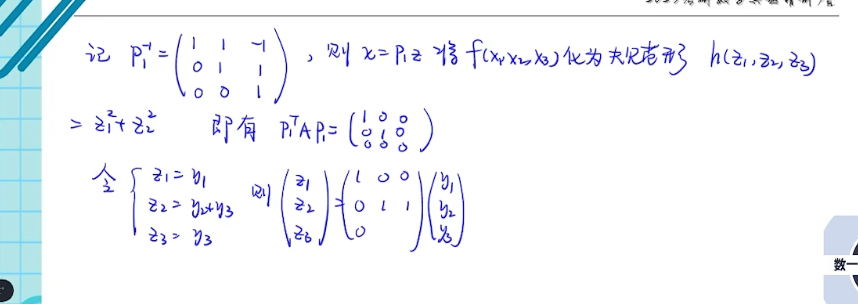 记 P₁⁻¹ = ( 1 1 -1 ; 0 1 1 ; 0 0 1 ) , 则 x = P₁z 将 f(x₁,x₂,x₃) 化为规范形 h(z₁,z₂,z₃)
= z₁² + z₂² 即有 P₁ᵀAP₁ = ( 1 0 0 ; 0 1 0 ; 0 0 0 )
令 { z₁ = y₁ ; z₂ = y₂+y₃ ; z₃ = y₃ 则 ( z₁ ; z₂ ; z₃ ) = ( 1 0 0 ; 0 1 1 ; 0 ) ( y₁ ; y₂ ; y₃ )
数一